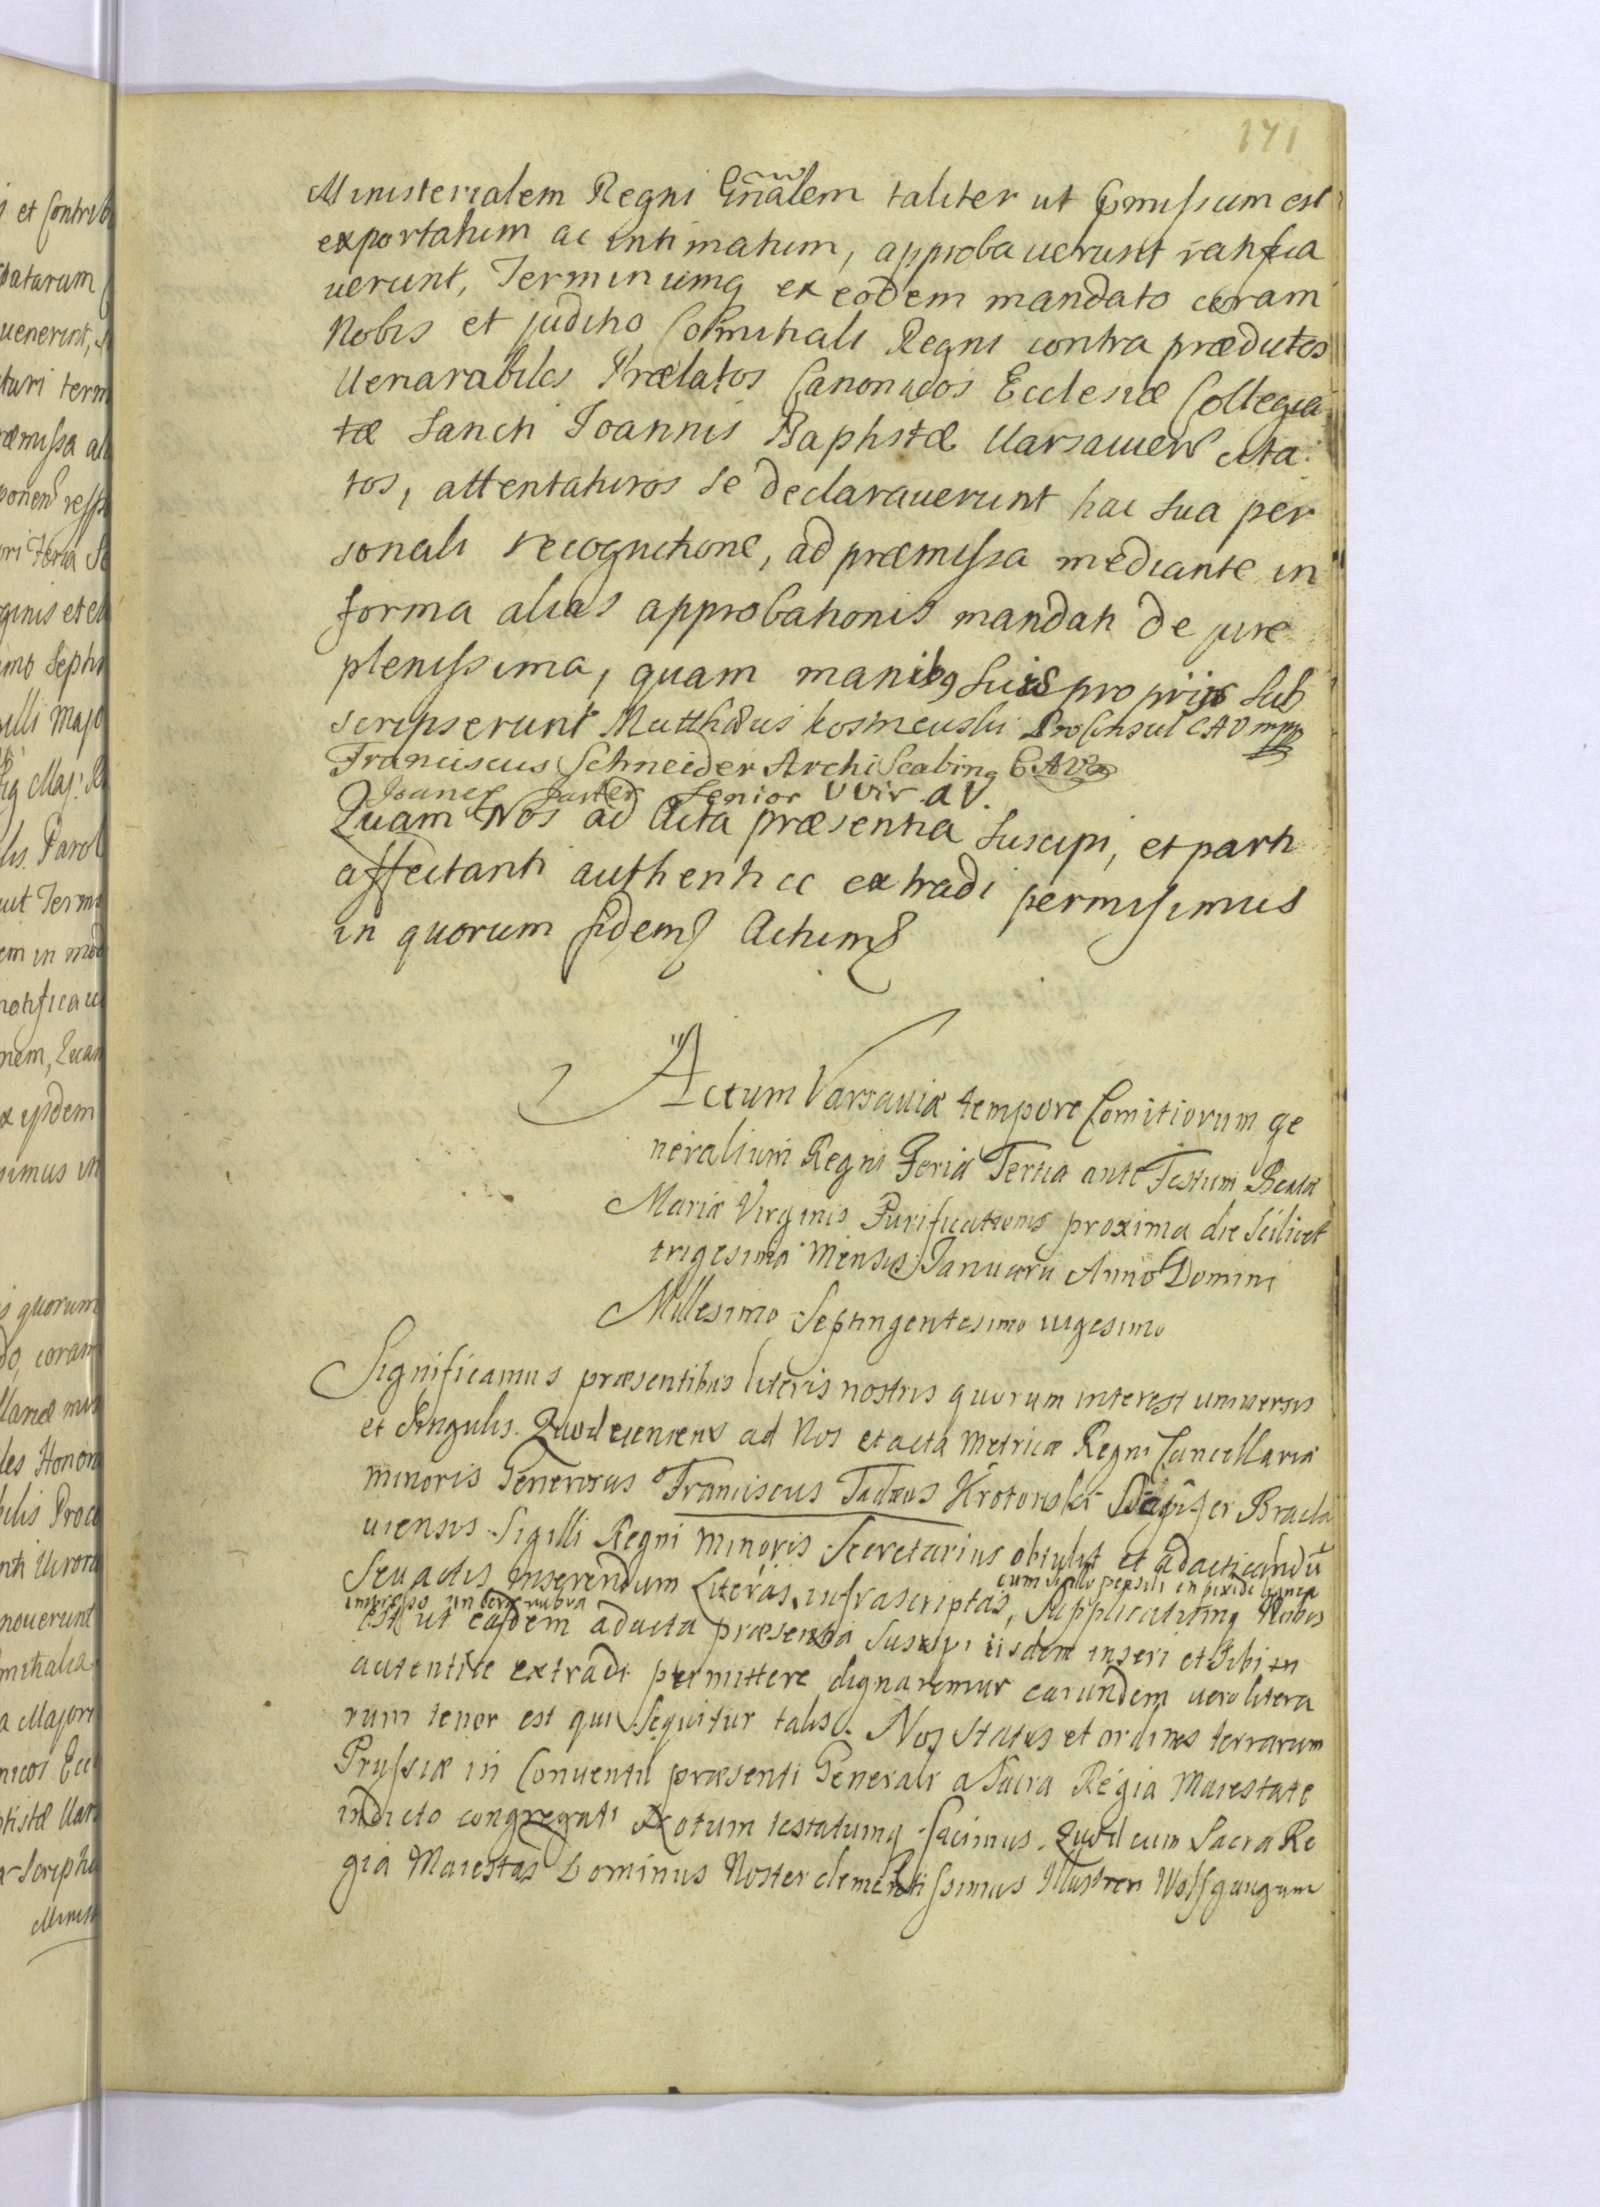 171
Ministerialem Regni Gñalem taliter ut præmissum est
exportatum ac intimatum, approbaverunt ratifica
verunt, Terminumq ex eodem mandato coram
Nobis et judicio Comitiali Regni contra prædictos
Venerabiles Prælatos Canonicos Ecclesiæ Collegia
tæ Sancti Joannis Baptistæ Varsavien cita
tos, attentaturos se declaraverunt hac sua per
sonali recognitione, ad præmissa mediante in
forma alias approbationis mandati de jure
plenissima, quam manibq suis propriis sub
scripserunt Matthæus Kosmewski ProConsul CAV mpp
Franciscus Schneider ArchiScabinq CAV
Joanes Senior VVir AV.
Quam Nos ad Acta præsentia suscipi, et parti
affectanti authentice extradi permisimus
in quorum fidem Actum
Actum Varsaviæ tempore Comitiorum ge
neralium Regni Feria Tertia ante Festum Beatæ
Mariæ Virginis Purificationis proxima die scilicet
trigesima Mensis Januarii Anno Domini
Millesimo Septingentesimo vigesimo
Significamus præsentibus literis nostris quorum interest universis
et singulis. Quod veniens ad Nos et acta Metricæ Regni Cancellariæ
minoris Generosus Franciscus Tadeus Krotowski Dapifer Bracla
viensis Sigilli Regni minoris Secretarius obtulit et ad acticandũ
seu actis inserendum Literas infrascriptas, cum sigillo pensili in pixide lignea
impresso in cera rubra Supplicatumq Nobis
est ut easdem ad acta præsentia suscipi iisdem inseri et sibi in
autentice extradi permittere dignaremur earundem vero litera
rum tenor est qui sequitur talis. Nos Status et ordines terrarum
Prussiæ in Conventu præsenti Generali a Sacra Regia Maiestate
indicto congregati Notum testatumq facimus. Quod cum Sacra Re
gia Maiestas Dominus Noster clementissimus Illustrem Wolfgangum